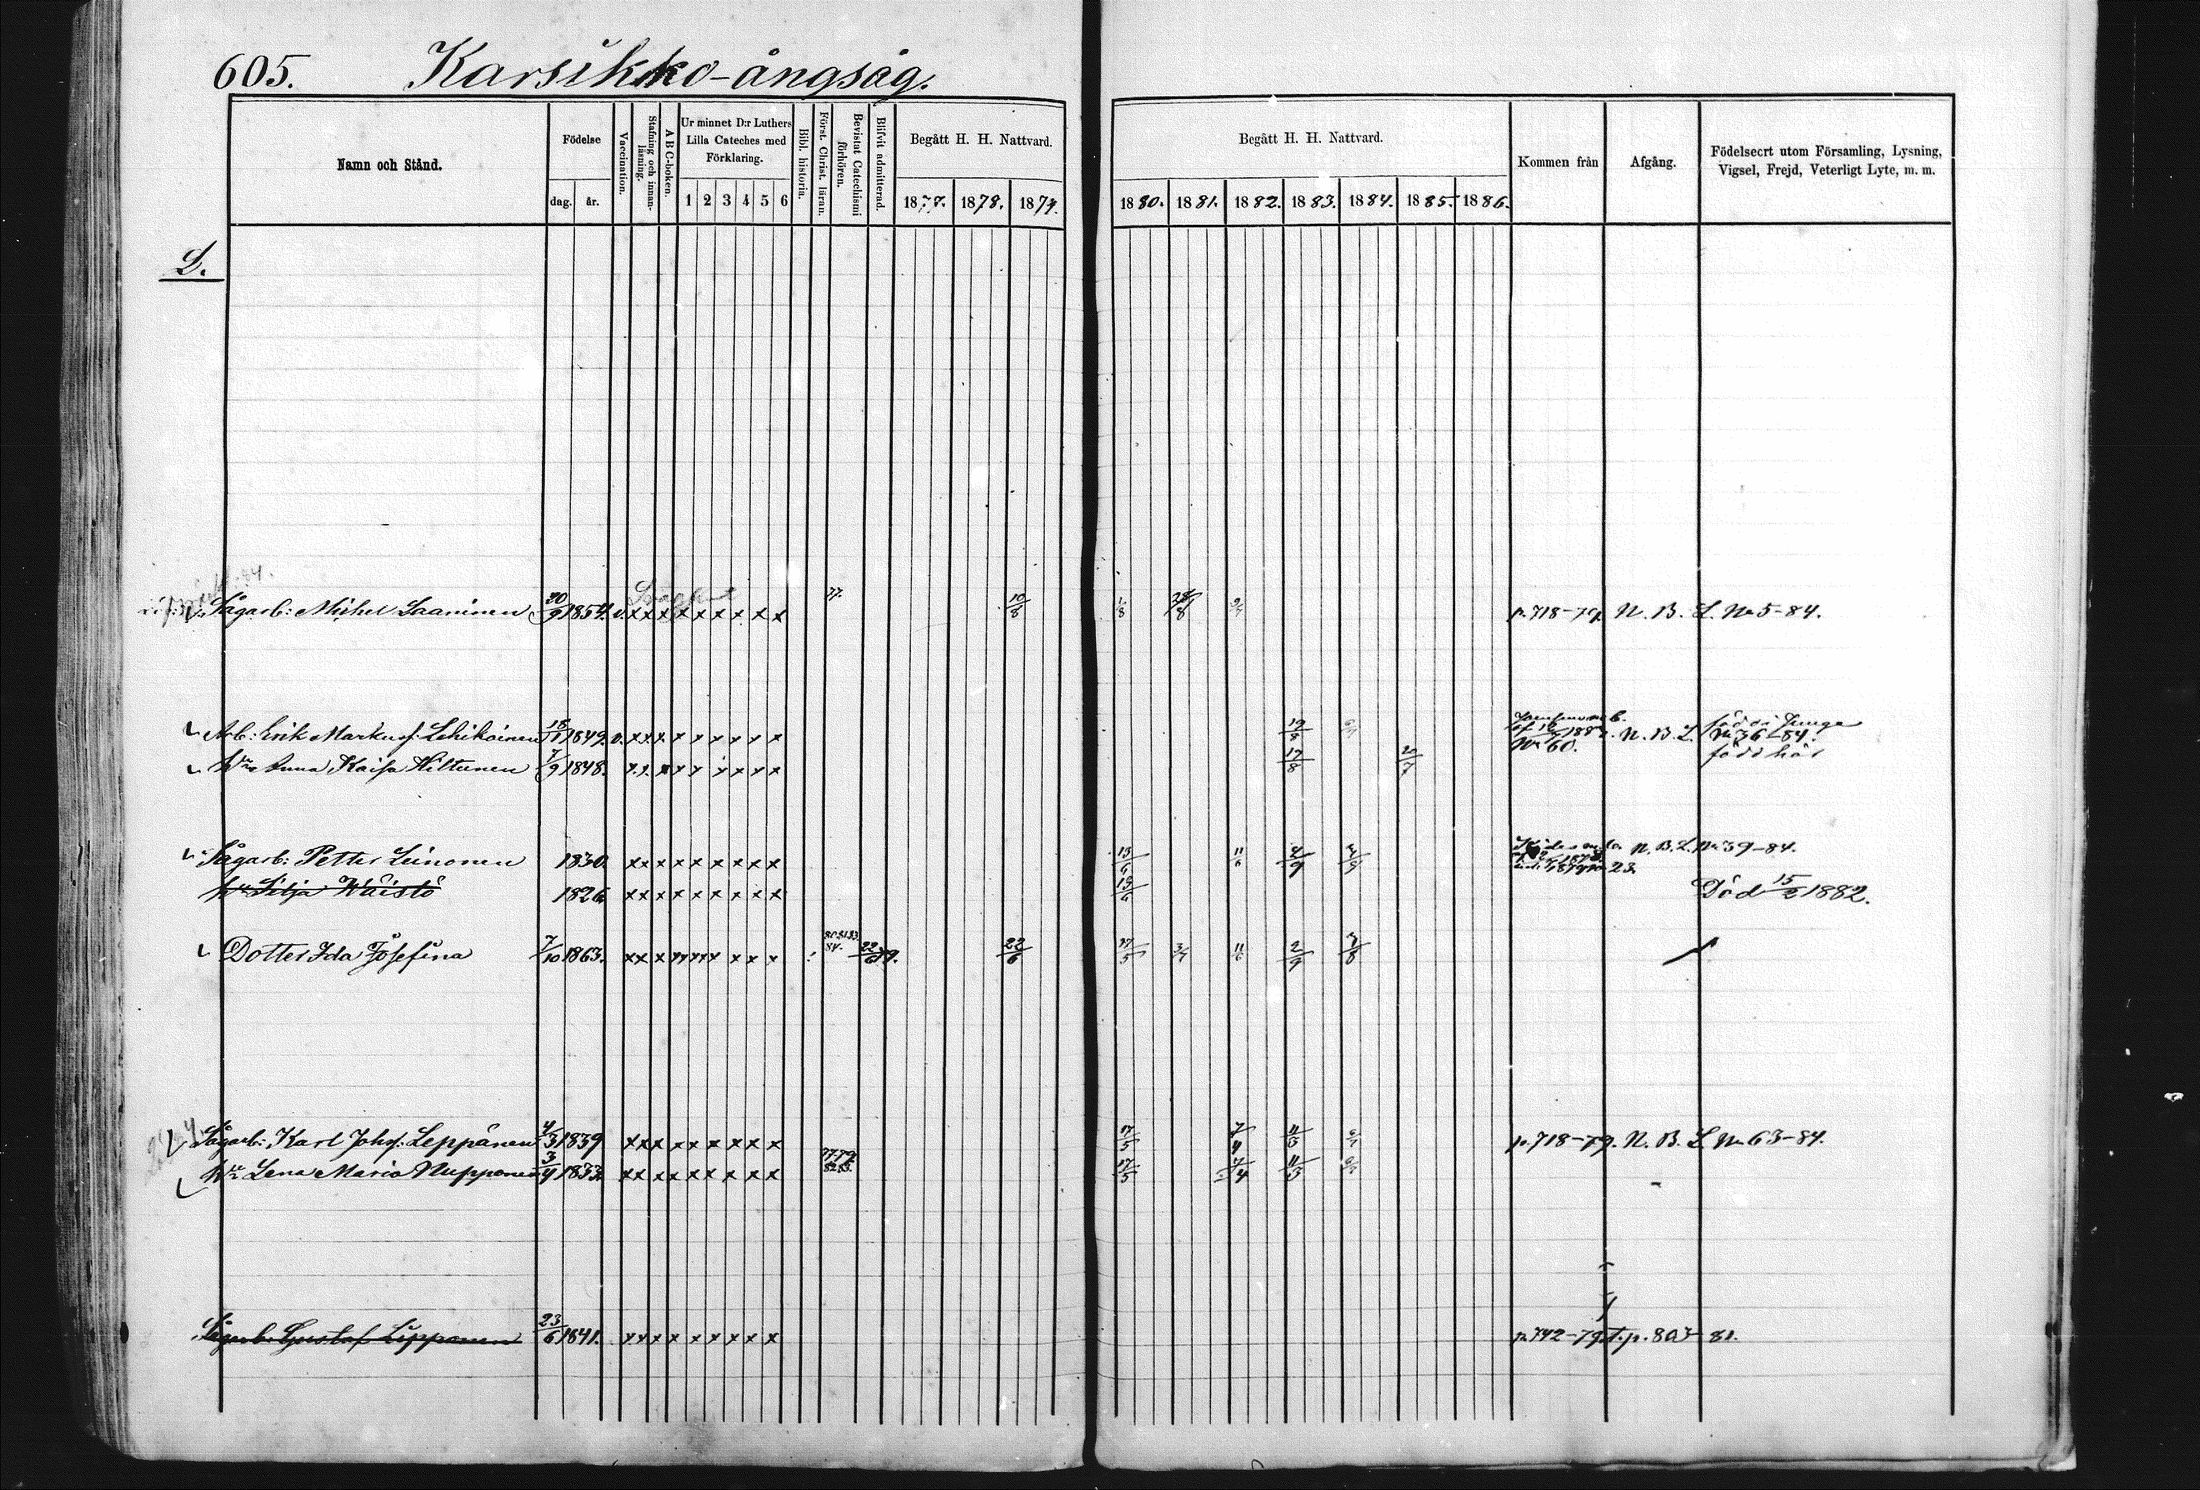 605. Karsikko-ångsåg.
Namn och Stånd.
Födelse
dag. år.
Vaccination.
Stafning och innan-läsning.
ABC-boken.
Ur minnet D:r Luthers
Lilla Cateches med
Förklaring.
1 2 3 4 5 6
Bibl. historia.
Först. Christ. läran.
Bevistat Catechismi förhören.
Blifvit admitterad.
Begått H. H. Nattvard.
1877. 1878. 1879.
Begått H. H. Nattvard.
1880. 1881. 1882. 1883. 1884. 1885. 1886.
Kommen från
Afgång.
Födelseort utom Församling, Lysning,
Vigsel, Frejd, Veterligt Lyte, m. m.
L.
Sågarb: Mishel Laaninen 20/9 1854. v. x x x x x x x x x 77. 10/8 1/8 28/8 p. 718-79. N. B. L. No 5-84.
Arb: Erik Markusf. Lehikoinen 18/11 1849. v. x x x x x x x x x 19/8 No 60. N. B. L. No 36-84.
h:u Anna Kaisa Hiltunen 7/9 1848. x x x x x x x x x 17/8 född här
Sågarb: Petter Leinonen 1830. x x x x x x x x x 13/6 11/6 2/9 N. B. L. No 39-84.
h:u Silja Wäistö 1826 x x x x x x x x x 13/6 Död 15/2 1882.
Dotter Ida Josefina 7/10 1863. x x x x x x x x x 22/6 79. 22/6 17/5 3/7 11/6 2/9 3/8
Sågarb: Karl Johsf. Leppänen 4/3 1839 x x x x x x x x x 17/5 7/4 11/3 p. 718-79. N. B. L. No 63-84.
h:u Lena Maria Nupponen 3/4 1833. x x x x x x x x x 77.79. 82.83. 17/5 7/4 11/3
Sågarb: Gustaf Lipponen 23/6 1841. x x x x x x x x x p. 742-79. T. p. 803-81.